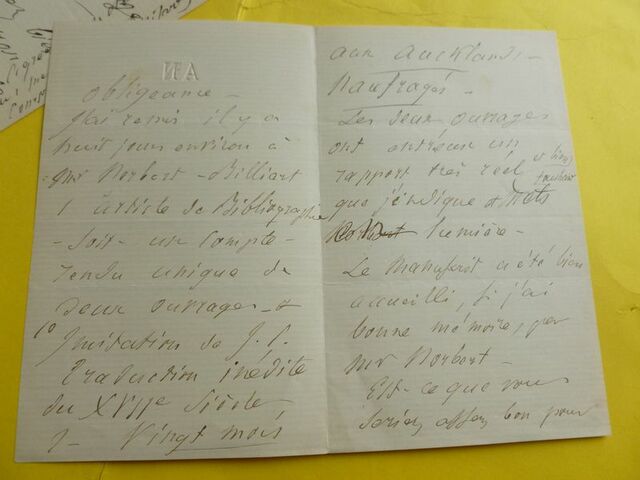 obligeance —
J'ai remis il y a
huit jours environ à
Mr Norbert-Billiart
l'article de Bibliographie
- soit - un compte-
rendu unique de
deux ouvrages -
1º
Imitation de J. C.
traduction inédite
du XVIIe siècle
2 - Vingt mois
aux Auckland -
Naufragés -
Les deux ouvrages
ont entr'eux un
rapport très réel et bien touchant
que j'indique et mets
lumière -
Le manuscrit a été bien
accueilli, si j'ai
bonne mémoire, par
Mr Norbert -
Est-ce que vous
seriez assez bon pour